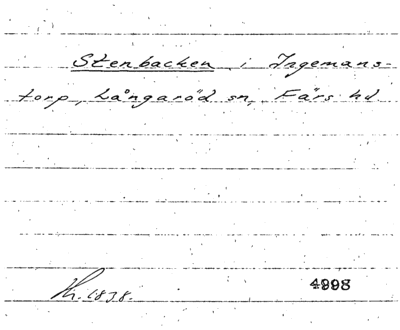 Stenbacken i Ingemans-
torp, Långaröd sn, Färs hd
Kr. 1838.
4998